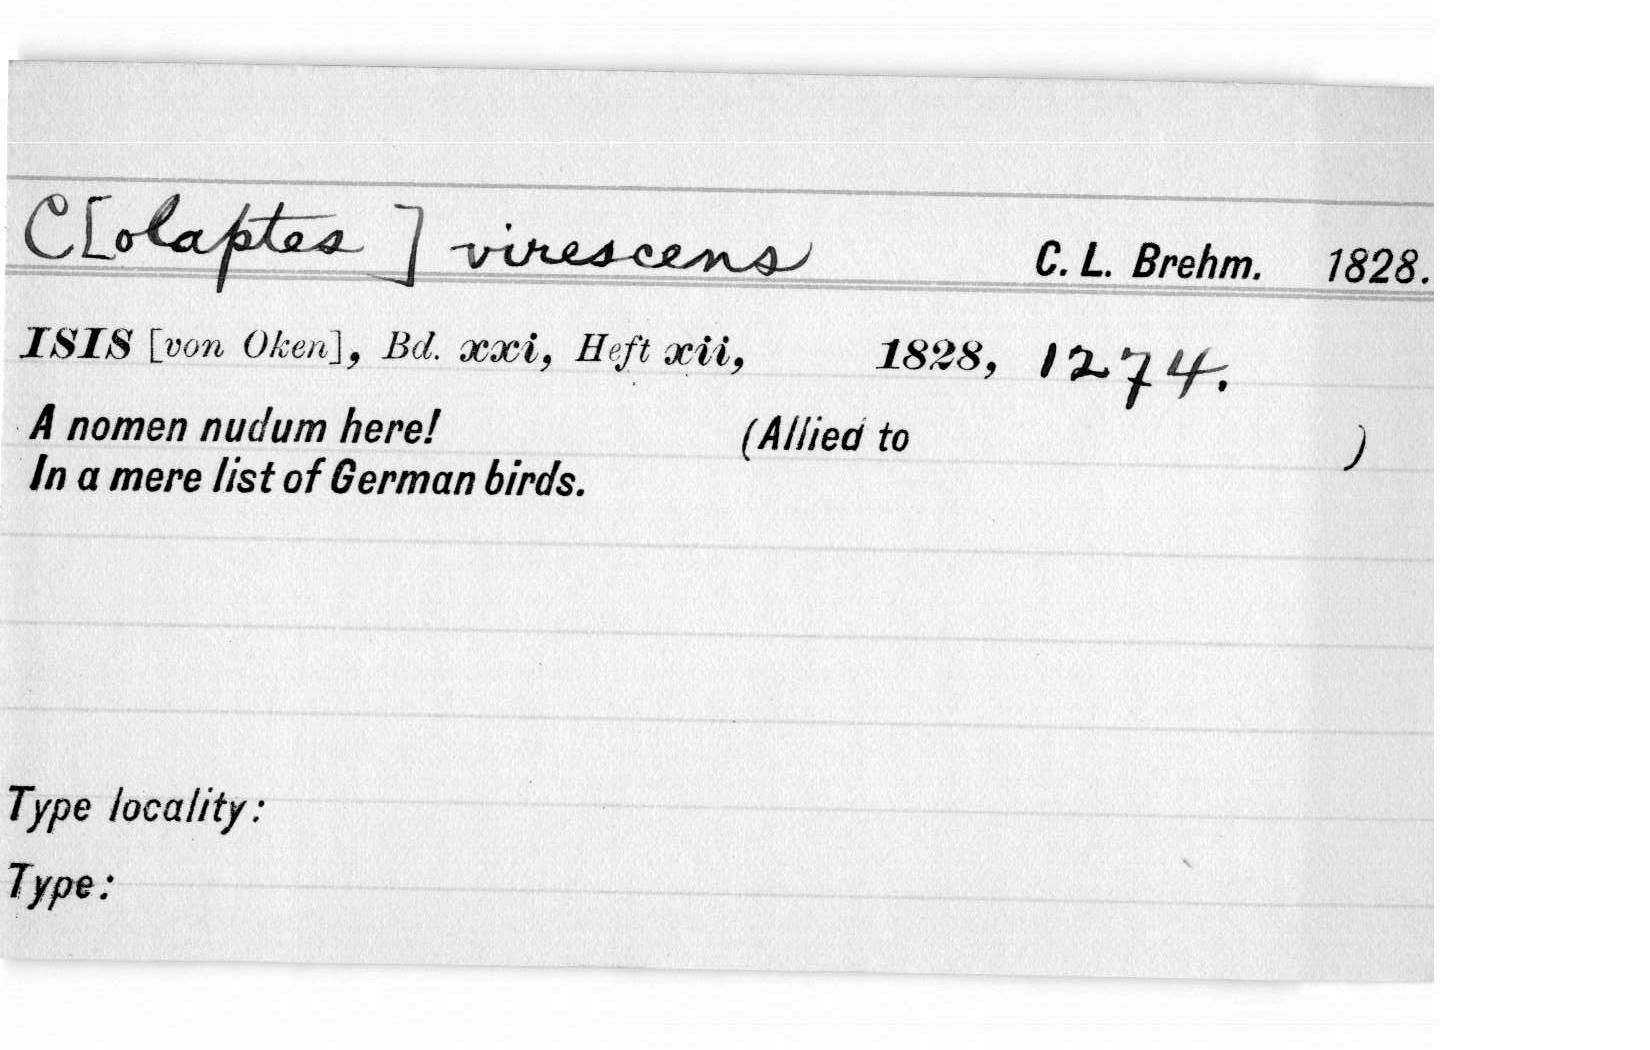 C[olaptes] virescens C. L. Brehm. 1828.
ISIS [von Oken], Bd. xxi, Heft xii, 1828, 1274.
A nomen nudum here! (Allied to )
In a mere list of German birds.
Type locality:
Type: